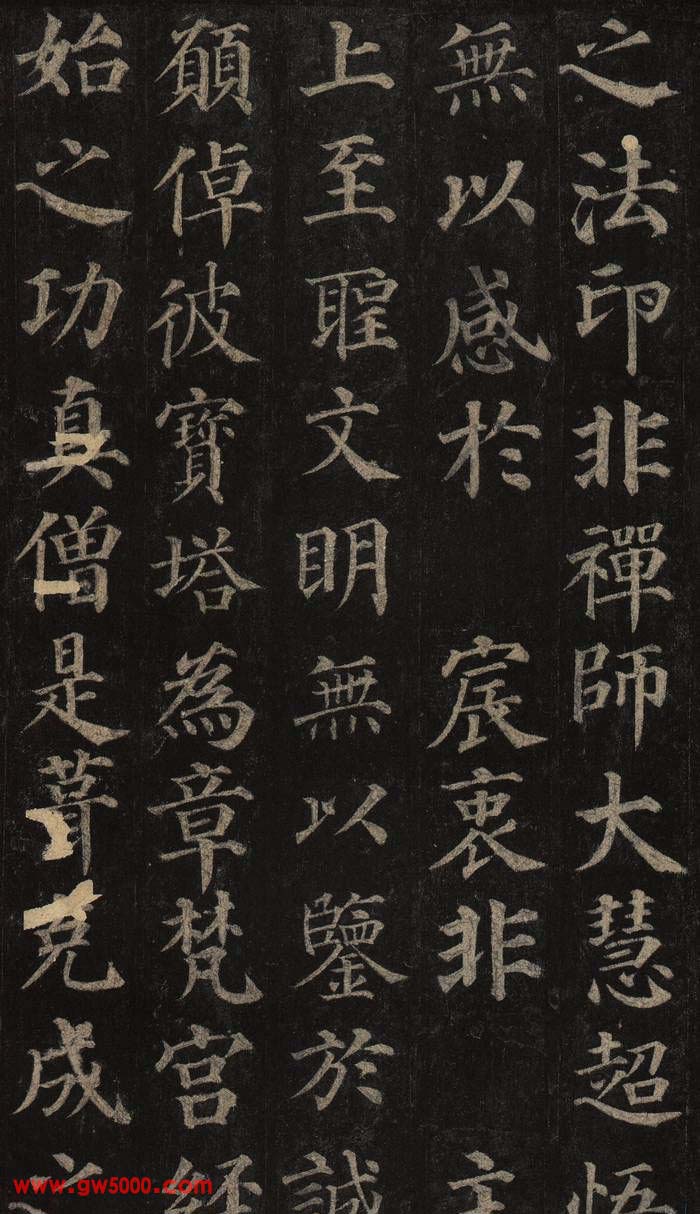 之法印非禪師大慧超悟
無以感於 宸衷非 主
上至聖文明無以鑒於誠
願倬彼寶塔為章梵宮經
始之功真僧是葺克成之
www.gw5000.com